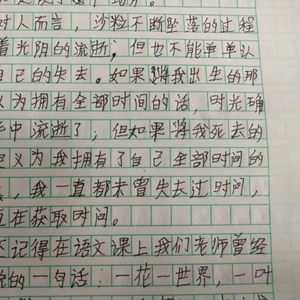 对人而言，沙粒不断坠落的过程
着光阴的流逝；但也不能单单认
自己的失去。如果将我出生的那
义为拥有全部时间的话，时光确
中流逝了；但如果将我死去的
定义为我拥有了自己全部时间的
，我一直都未曾失去过时间，
在获取时间。
记得在语文课上我们老师曾经
的一句话：一花一世界，一叶